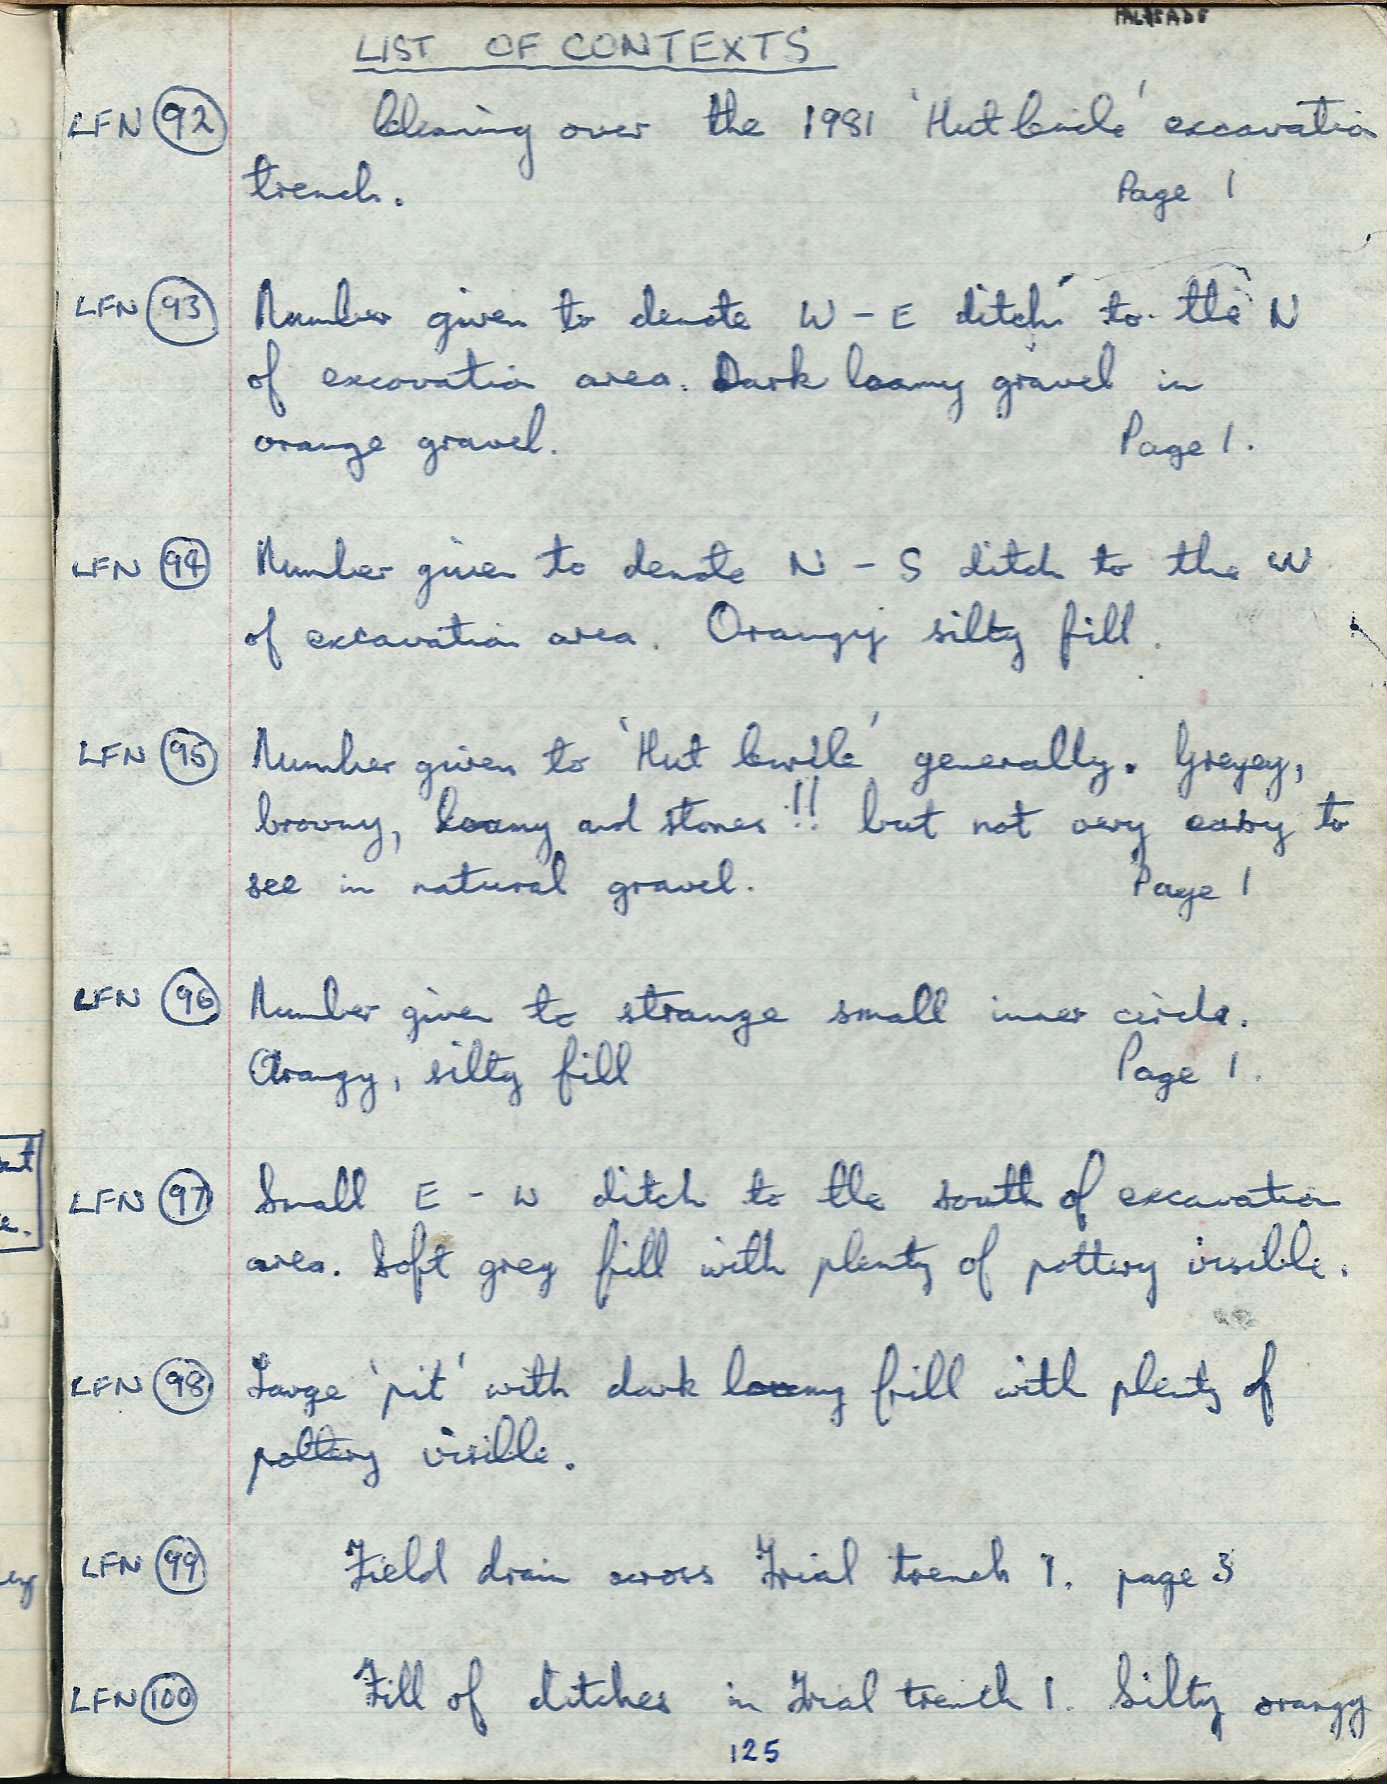 PALISADE
LIST OF CONTEXTS
LFN 92 Cleaning over the 1981 'Hut Circle' excavation
trench. Page 1
LFN 93 Number given to denote W - E ditch to the N
of excavation area. Dark loamy gravel in
orange gravel. Page 1.
LFN 94 Number given to denote N - S ditch to the W
of excavation area. Orangy silty fill.
LFN 95 Number given to 'Hut Circle' generally. Greyey,
browny, loamy and stones!! but not very easy to
see in natural gravel. Page 1
LFN 96 Number given to strange small inner circle.
Orangy, silty fill Page 1.
LFN 97 Small E - W ditch to the south of excavation
area. Soft grey fill with plenty of pottery visible.
LFN 98 Large 'pit' with dark loamy fill with plenty of
pottery visible.
LFN 99 Field drain across Trial trench 1. page 3
LFN 100 Fill of ditches in Trial trench 1. Silty orangy
125